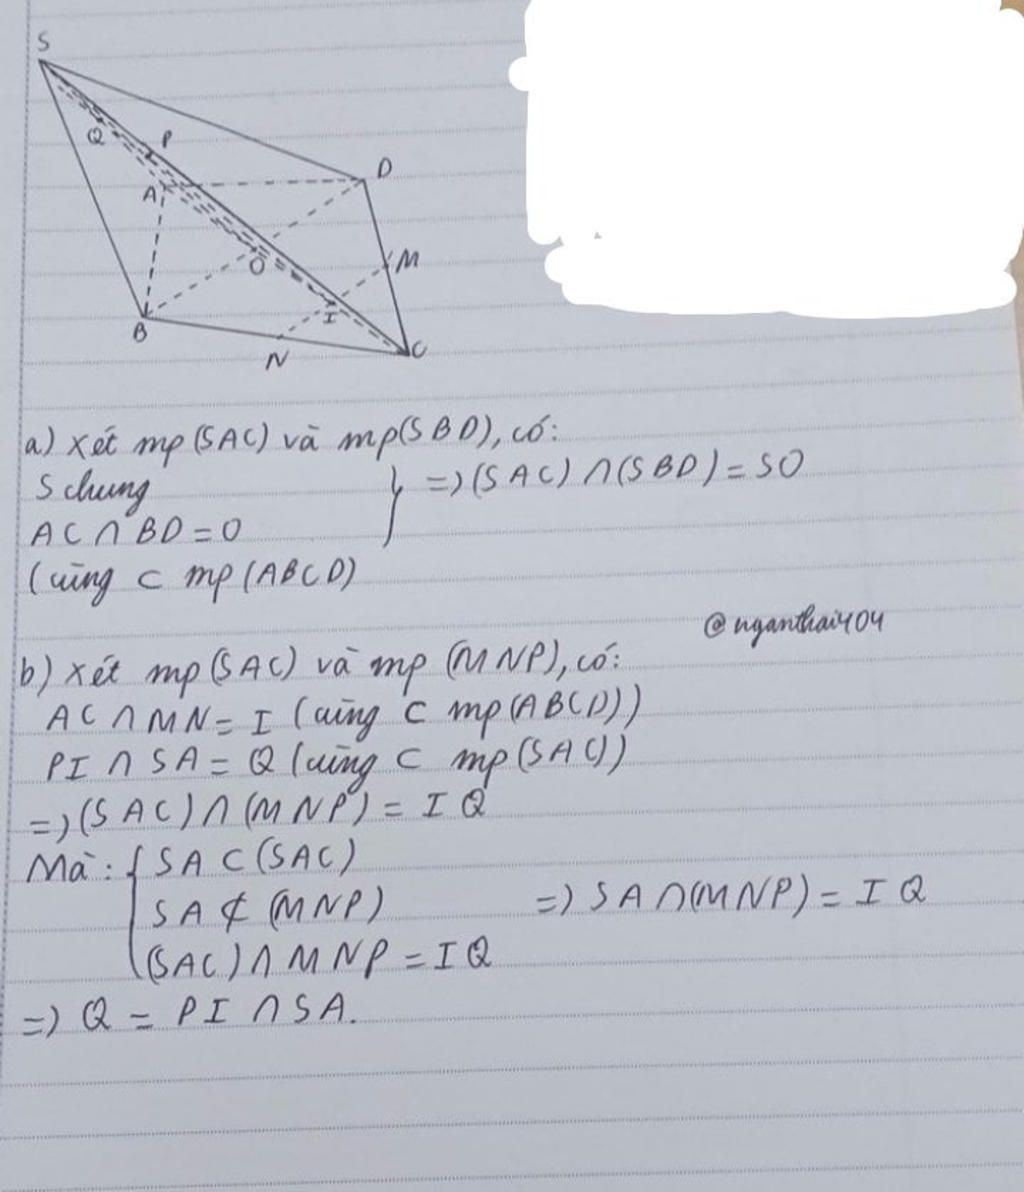 S
Q
P
A
D
O
M
I
B
N
C
a) Xét mp(SAC) và mp(SBD), có:
S chung
AC ∩ BD = O
=> (SAC) ∩ (SBD) = SO
(cùng ⊂ mp(ABCD)
@nganthai404
b) Xét mp(SAC) và mp (MNP), có:
AC ∩ MN = I (cùng ⊂ mp(ABCD))
PI ∩ SA = Q (cùng ⊂ mp(SAC))
=> (SAC) ∩ (MNP) = IQ
Mà: { SA ⊂ (SAC)
SA ⊄ (MNP) => SA ∩ (MNP) = IQ
(SAC) ∩ MNP = IQ
=> Q = PI ∩ SA.